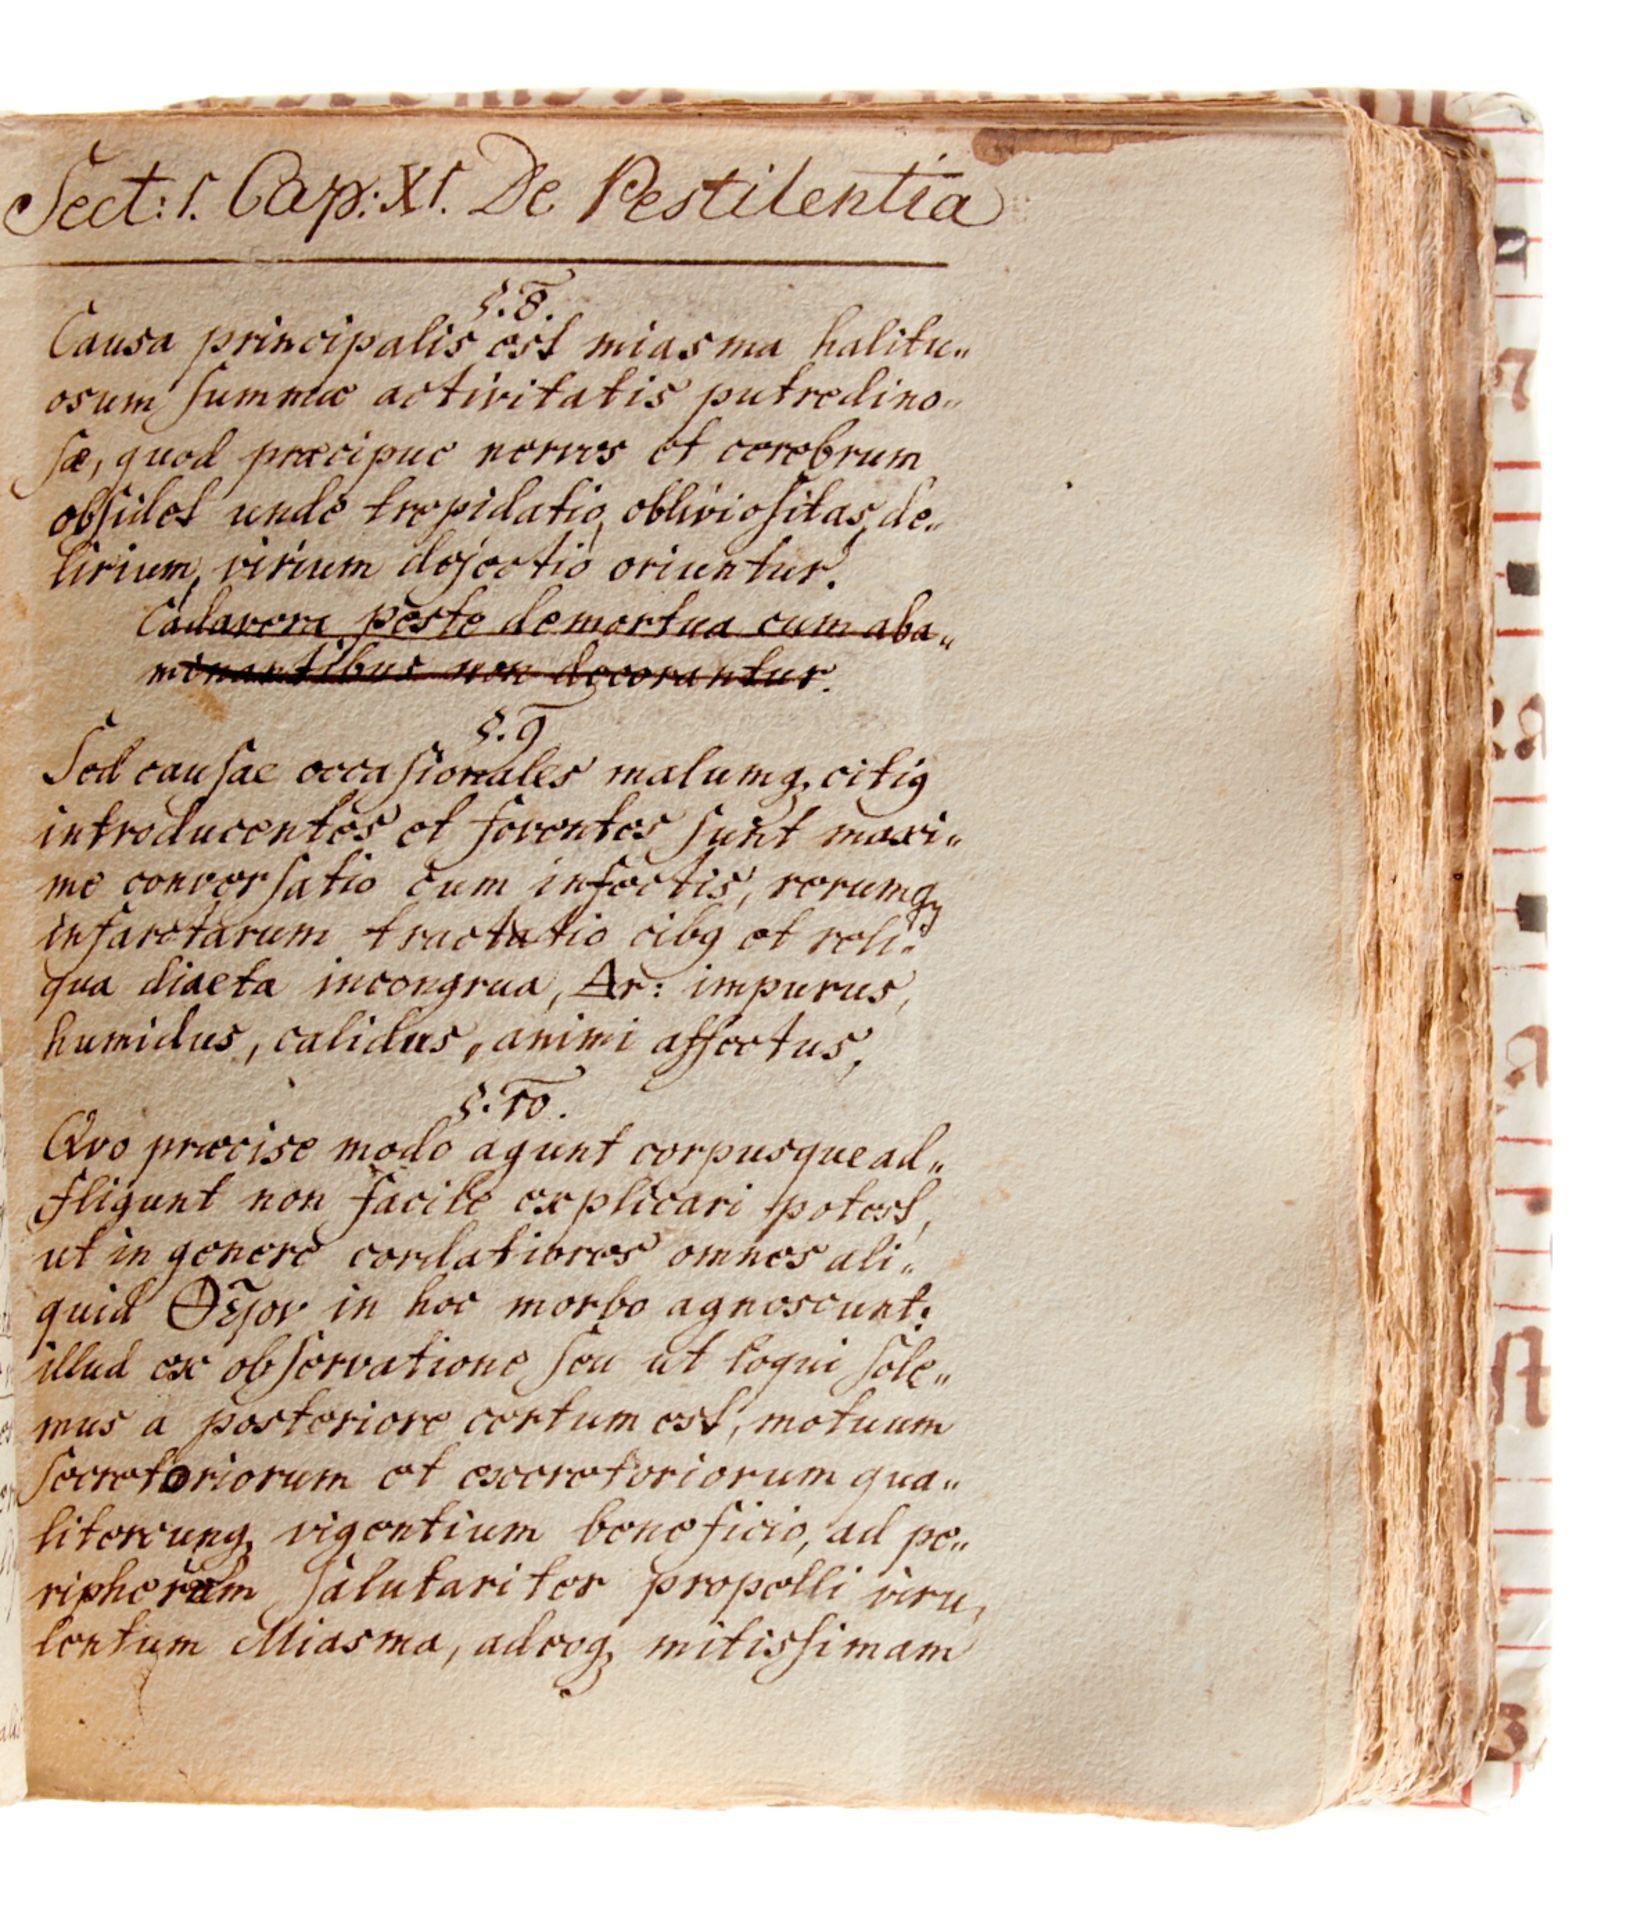 Sect: 1. Cap: XI. De Pestilentia
§. 8.
Causa principalis est miasma halitu„
osum summæ activitatis putredino„
sæ, quod præcipue nervos et cerebrum
obsidet unde trepidatio, obliviositas, de„
lirium, virium dejectio oriuntur.
Cadavera peste demortua cum aba„
minantibus non decorantur.
§. 9
Sed causae occasionales malumq, citig
introducentes et foventes sunt maxi„
me conversatio cum infectis, rerumq,
infarctarum tractatio cibg et reli„
qua diaeta incongrua, impurus,
humidus, calidus, animi affectus,
§. 10.
Qvo præcise modo agunt corpusque ad„
fligunt non facile explicari potest,
ut in genere cordatiores omnes ali„
quid in hoc morbo agnoscunt:
illud ex observatione seu ut loqui sole„
mus a posteriore certum est, motuum
secretoriorum et excretoriorum qua„
litercunq, vigentium beneficio, ad pe„
ripheriam salutariter propelli viru„
lentum Miasma, adeoq, mitissimam